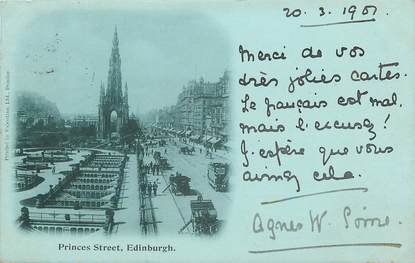 20.3.1901
Merci de vos
très jolies cartes.
Le français est mal,
mais l'excusez!
J'espère que vous
aimez cela.
Agnes W.
Princes Street, Edinburgh.
Printed by Valentine, Ltd., Dundee